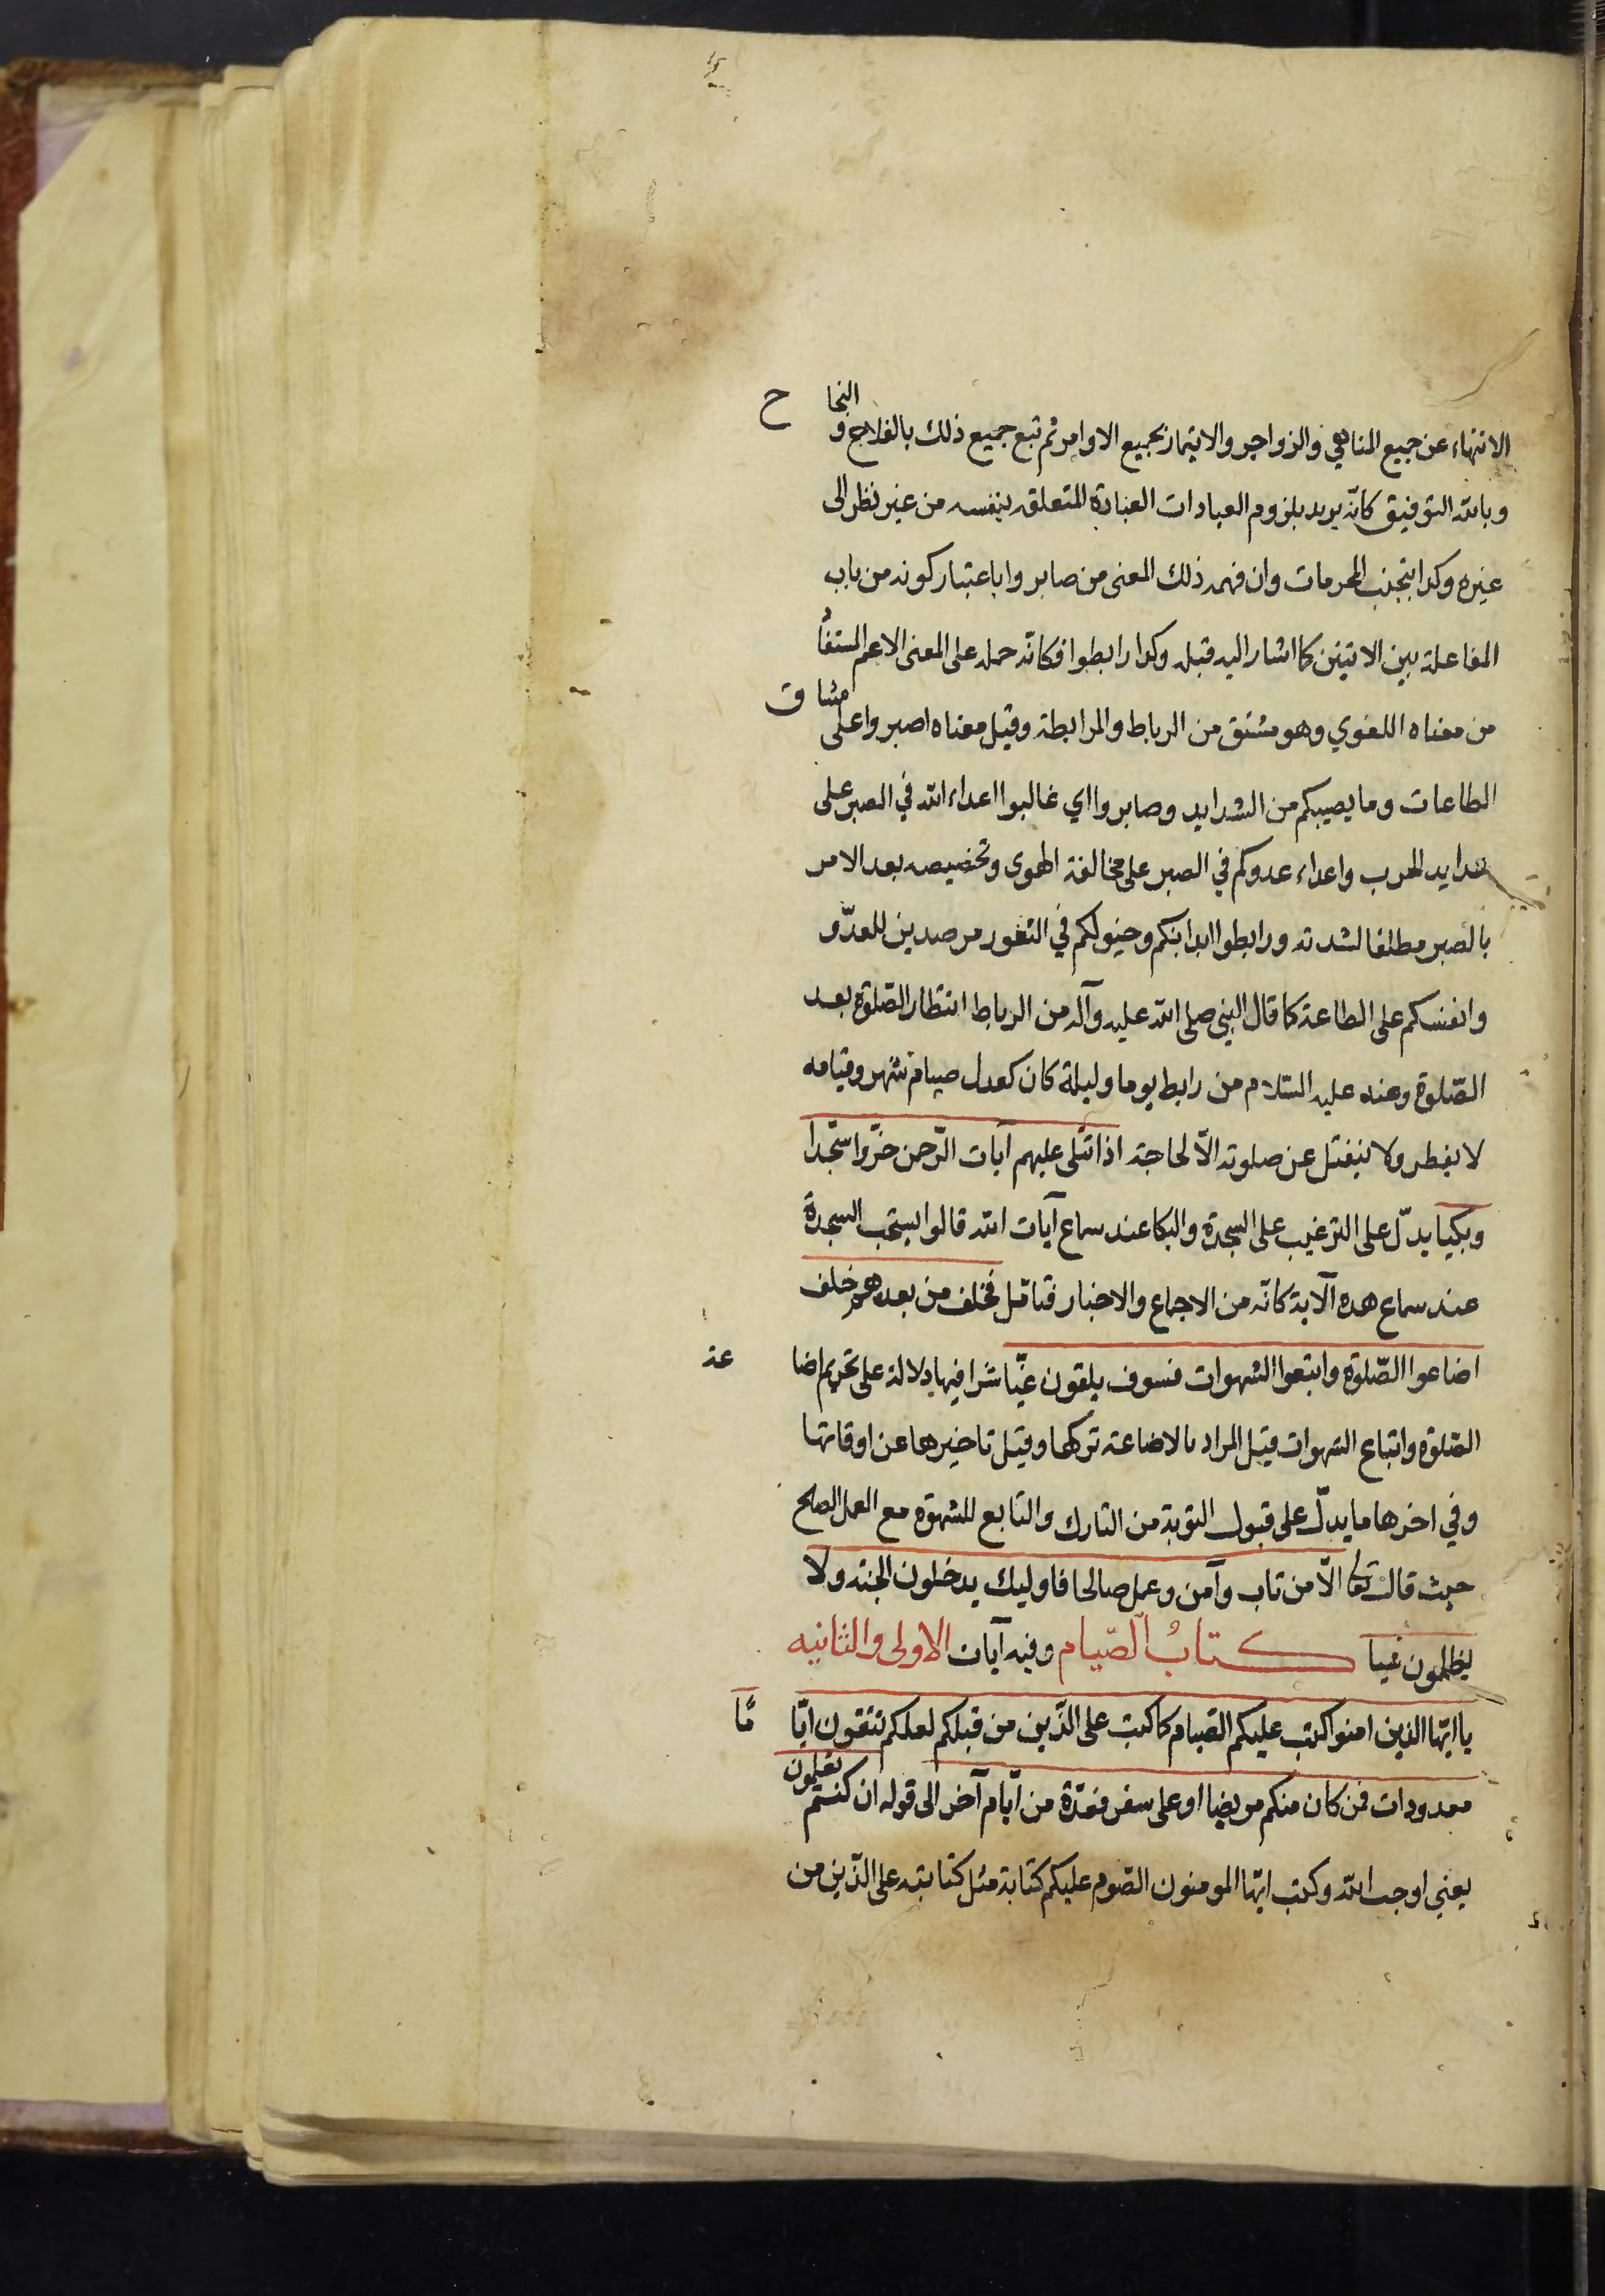 الانتهاء عن جميع المناهي والزواجر والايتمار بجميع الاوامر ثم تبع جميع ذلك بالفلاح و النجاح
وبالله التوفيق كانّه يريد بلزوم العبادات العبادة المتعلقه بنفسه من غير نظر الى
غيره وكذا بتجنب المحرمات وان فهمه ذلك المعنى من صابروا باعتبار كونه من باب
المفاعلة بين الاثنين كما اشار اليه قبله وكذا رابطوا فكانّه حمله على المعنى الاعم المستفاد
من معناه اللغوي وهو مشتق من الرباط والمرابطة وقيل معناه اصبروا على مشاق
الطاعات وما يصيبكم من الشدايد وصابروا اي غالبوا اعداء الله في الصبر على
شدايد الحرب واعداء عدوكم في الصبر على مخالفة الهوى وتخصيصه بعد الامر
بالصبر مطلقا لشدته ورابطوا ابدانكم وخيولكم في الثغور مرصدين للعدّو
وانفسكم على الطاعة كما قال النبي صلى الله عليه وآله من الرباط انتظار الصّلوة بعد
الصّلوة وعنه عليه السّلام من رابط يوما وليلة كان كعدل صيام شهر وقيامه
لا يفطر ولا ينفتل عن صلوته الاّ لحاجة اذا تتلى عليهم آيات الرّحمن خرّوا سجّدا
وبكيا يدلّ على الترغيب على السجدة والبكا عند سماع آيات الله قالوا يستحب السجدة
عند سماع هذه الآية كانّه من الاجماع والاخبار فتامّل فخلف من بعدهم خلف
اضاعوا الصّلوة واتبعوا الشهوات فسوف يلقون غيّا شرا فيها دلالة على تحريم اضاعة
الصّلوة واتباع الشهوات قيل المراد بالاضاعة تركها وقيل تاخيرها عن اوقاتها
وفي اخرها ما يدلّ على قبول التوبة من التارك والتابع للشهوة مع العمل الصلح
حيث قال تعا الاّ من تاب وآمن وعمل صالحا فاوليك يدخلون الجنة ولا
يظلمون شيا كتابُ الصّيام وفيه آيات الاولى والثانيه
يا ايّها الذين امنوا كتب عليكم الصيام كما كتب على الذّين من قبلكم لعلكم تتقون ايّامًا
معدودات فمن كان منكم مريضا او على سفر فعدّة من ايّام آخر الى قوله ان كنتم تعلمون
يعني اوجب الله وكتب ايّها المومنون الصّوم عليكم كتابة مثل كتابته على الذّين من